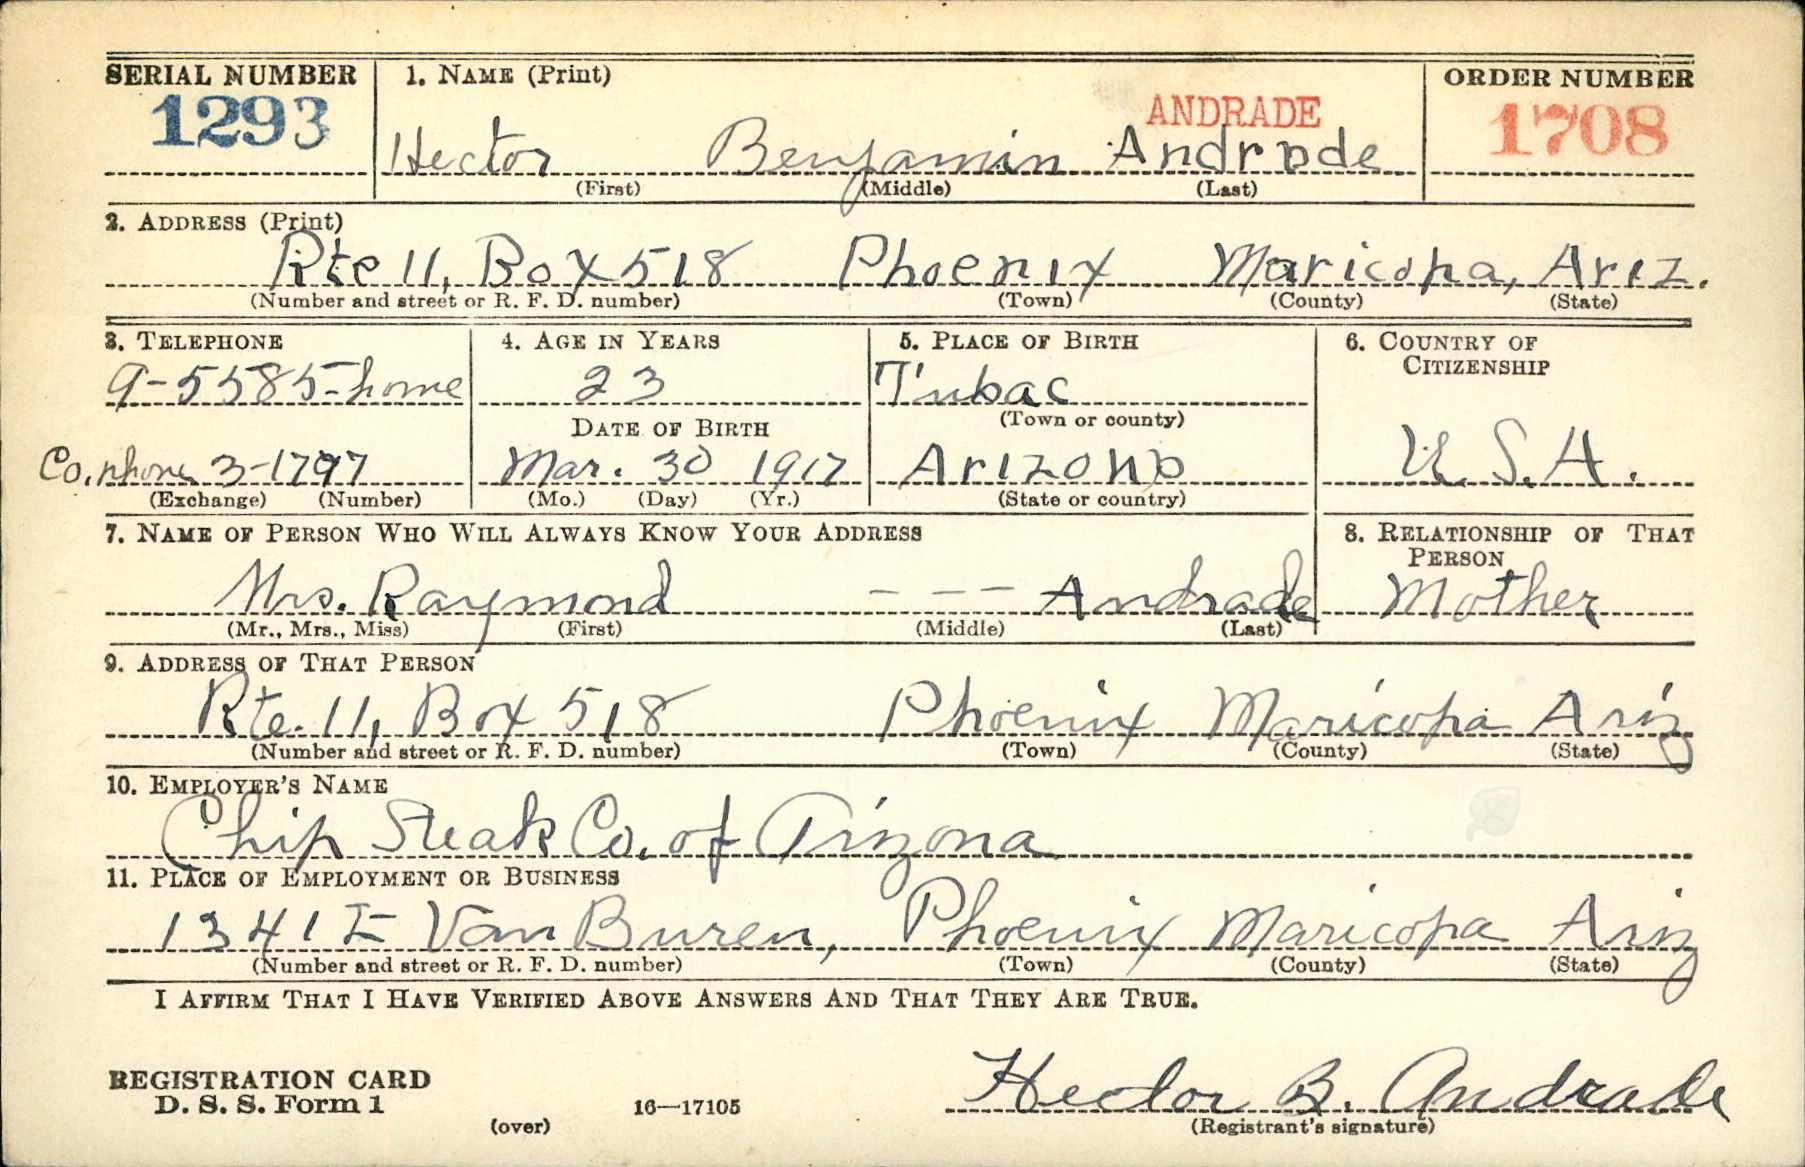 SERIAL NUMBER 1. NAME (Print) ORDER NUMBER
1293 ANDRADE 1708
Hector Benjamin Andrade
(First) (Middle) (Last)
2. ADDRESS (Print)
Rte 11, Box 518 Phoenix Maricopa, Ariz.
(Number and street or R. F. D. number) (Town) (County) (State)
3. TELEPHONE 4. AGE IN YEARS 5. PLACE OF BIRTH 6. COUNTRY OF
CITIZENSHIP
9-5585-home 23 Tubac
(Town or county)
DATE OF BIRTH
Co. phone 3-1797 Mar. 30 1917 Arizona U. S. A.
(Exchange) (Number) (Mo.) (Day) (Yr.) (State or country)
7. NAME OF PERSON WHO WILL ALWAYS KNOW YOUR ADDRESS 8. RELATIONSHIP OF THAT
PERSON
Mrs. Raymond --- Andrade Mother
(Mr., Mrs., Miss) (First) (Middle) (Last)
9. ADDRESS OF THAT PERSON
Rte. 11, Box 518 Phoenix Maricopa Ariz
(Number and street or R. F. D. number) (Town) (County) (State)
10. EMPLOYER'S NAME
Chip Steak Co. of Arizona
11. PLACE OF EMPLOYMENT OR BUSINESS
1341 E Van Buren, Phoenix Maricopa Ariz
(Number and street or R. F. D. number) (Town) (County) (State)
I AFFIRM THAT I HAVE VERIFIED ABOVE ANSWERS AND THAT THEY ARE TRUE.
REGISTRATION CARD
D. S. S. Form 1 16—17105 Hector B. Andrade
(over) (Registrant's signature)